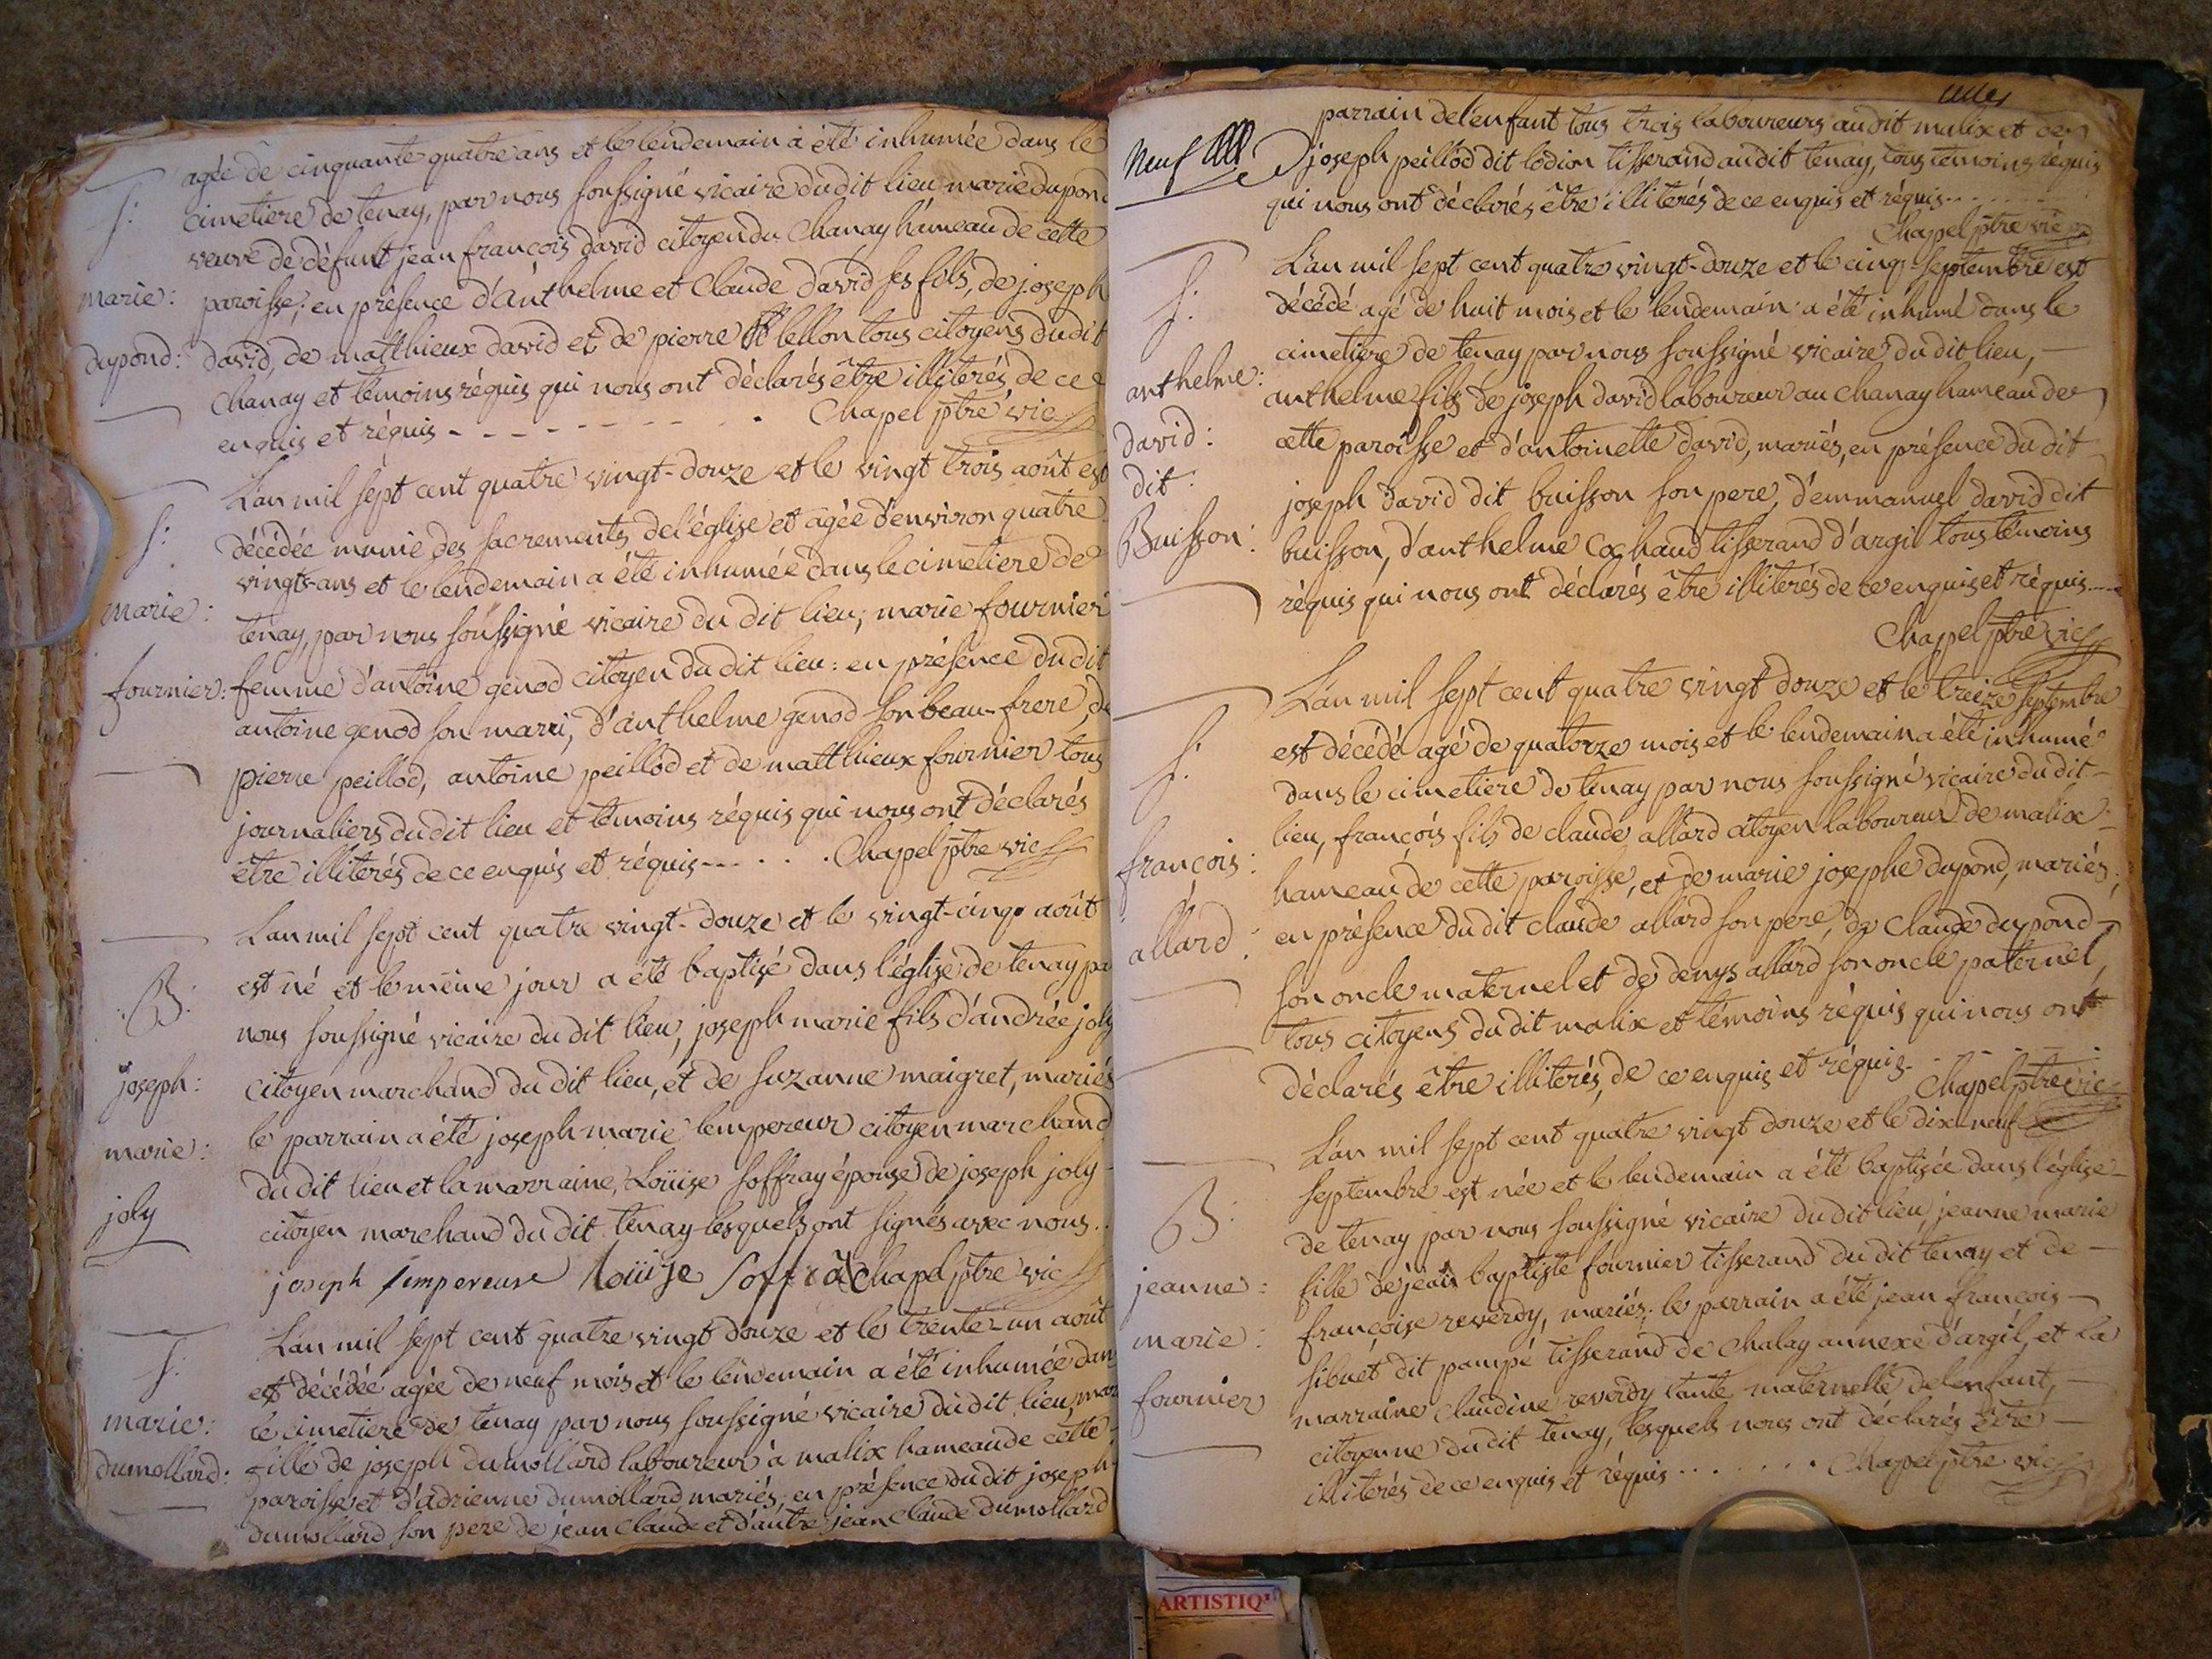 agée de cinquante quatre ans et le lendemain a été inhumée dans le
S:
cimetiere de tenay, par nous soussigné vicaire du dit lieu marie dupond
veuve de défunt jean françois david citoyen du Chanay hameau de cette
marie:
paroisse; en présence d'anthelme et Claude david ses fils, de joseph
dupond:
david, de matthieux david et de pierre lellon tous citoyens du dit
Chanay et témoins réquis qui nous ont déclarés être illiterés de ce
enquis et réquis - - - - - - - - - . Chapel ptre vic
L'an mil sept cent quatre vingt-douze et le vingt trois août est
S:
décédée munie des sacrements de l'église et agée d'environ quatre
vingts-ans et le lendemain a été inhumée dans le cimetiere de
marie:
tenay, par nous soussigné vicaire du dit lieu; marie fournier
fournier:
femme d'antoine genod citoyen du dit lieu: en présence du dit
antoine genod son marri, d'anthelme genod son beau-frere, de
pierre peillod, antoine peillod et de matthieux fournier tous
journaliers du dit lieu et témoins réquis qui nous ont déclarés
être illiterés de ce enquis et réquis - - . . . . Chapel ptre vic
L'an mil sept cent quatre vingt-douze et le vingt-cinq août
B:
est né et le même jour a été baptisé dans l'église de tenay pa
nous soussigné vicaire du dit lieu, joseph marie fils d'andrée joly
joseph:
citoyen marchand du dit lieu, et de suzanne maigret, mariés
marie:
le parrain a été joseph marie lempereur citoyen marchand
du dit lieu et la marraine, Loüise soffray épouse de joseph joly
joly
citoyen marchand du dit tenay lesquels ont signés avec nous..
joseph lempereur loüise soffra Chapel ptre vic
L'an mil sept cent quatre vingt douze et le trente-un août
S:
est décédée agée de neuf mois et le lendemain a été inhumée dan
marie:
le cimetiere de tenay par nous soussigné vicaire du dit lieu, mar
dumollard:
fille de joseph dumollard laboureur à malix hameau de cette
paroisse et d'adrienne dumollard mariés, en présence du dit joseph
dumollard son pere de jean Claude et d'autre jean Claude dumollard
parrain de l'enfant tous trois laboureurs au dit malix et de
Neuf
joseph peillod dit lodion tisserand au dit tenay, tous temoins réquis
qui nous ont déclarés être illiterés de ce enquis et réquis - - . . . .
Chapel ptre vic
L'an mil sept cent quatre vingt-douze et le cinq septembre est
S:
décédé agé de huit mois et le lendemain a été inhumé dans le
cimetiere de tenay par nous soussigné vicaire du dit lieu, -
anthelme:
anthelme fils de joseph david laboureur au chanay hameau de
david:
cette paroisse et d'antoinette david, mariés, en présence du dit
dit:
joseph david dit buisson son pere, d'emmanuel david dit
Buisson:
buisson, d'anthelme Cochaud tisserand d'argil tous témoins
réquis qui nous ont déclarés être illiterés de ce enquis et réquis....
Chapel ptre vic
L'an mil sept cent quatre vingt douze et le treize septembre
S:
est décédé agé de quatorze mois et le lendemain a été inhumé
dans le cimetiere de tenay par nous soussigné vicaire du dit -
lieu, françois fils de claude allard citoyen laboureur de malix -
françois:
hameau de cette paroisse, et de marie josephe dupond, mariés;
allard:
en présence du dit claude allard son pere, de claude dupond -
son oncle maternel et de denys allard son oncle paternel,
tous citoyens du dit malix et témoins réquis qui nous ont
déclarés être illiterés, de ce enquis et réquis. - - - - -
Chapel ptre vic
L'an mil sept cent quatre vingt douze et le dix-neuf
septembre est née et le lendemain a été baptisée dans l'église -
B:
de tenay par nous soussigné vicaire du dit lieu, jeanne marie
jeanne:
fille de jean baptiste fournier tisserand du dit tenay et de -
marie:
françoise reverdy, mariés; le parrain a été jean françois -
sibuet dit pampé tisserand de Chalay annexe d'argil, et la
fournier
marraine Claudine reverdy tante maternelle de l'enfant, -
citoyenne du dit tenay, lesquels nous ont déclarés être -
illiterés de ce enquis et réquis . . . . . . . Chapel ptre vic
ARTISTIQ